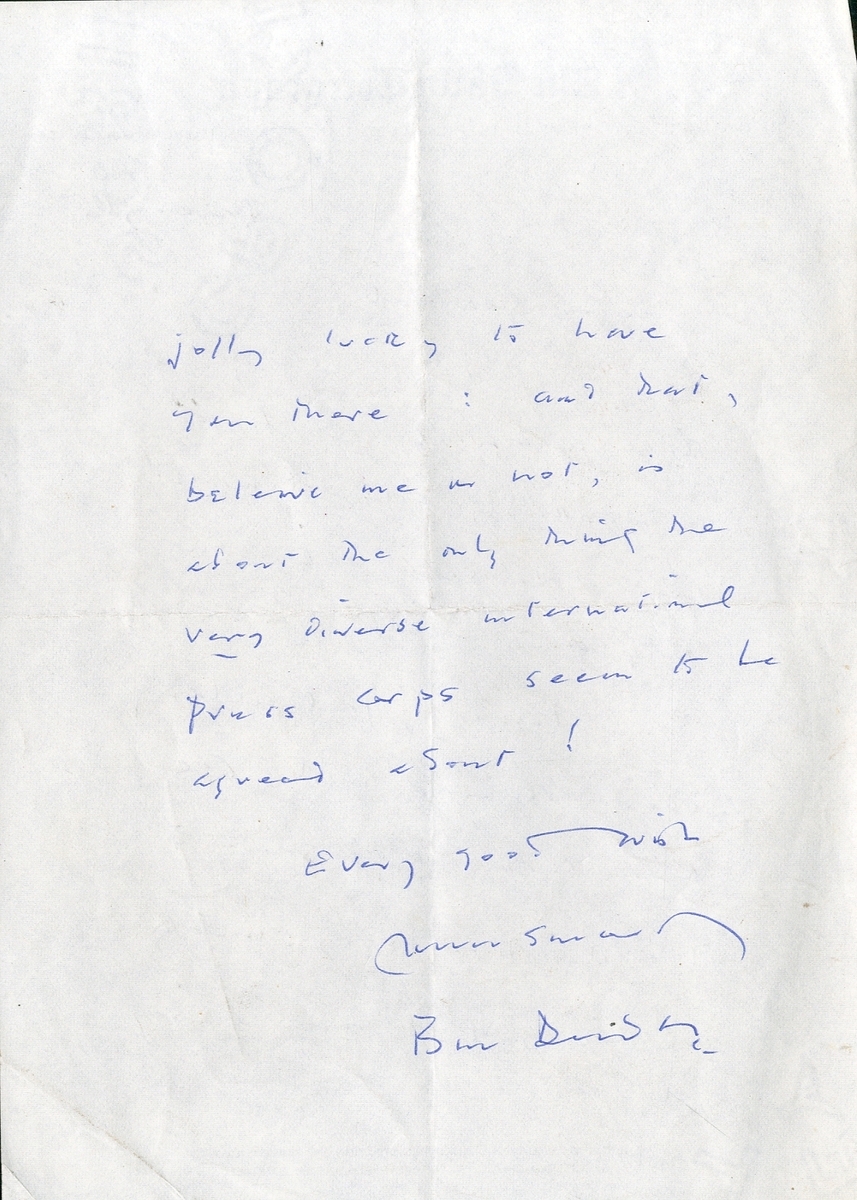 jolly lucky to have
you there : and that,
beleive me or not, is
about the only thing the
very diverse international
press corps seem to be
agreed about !
Every good wish
Yours sincerely
Bill Deedes